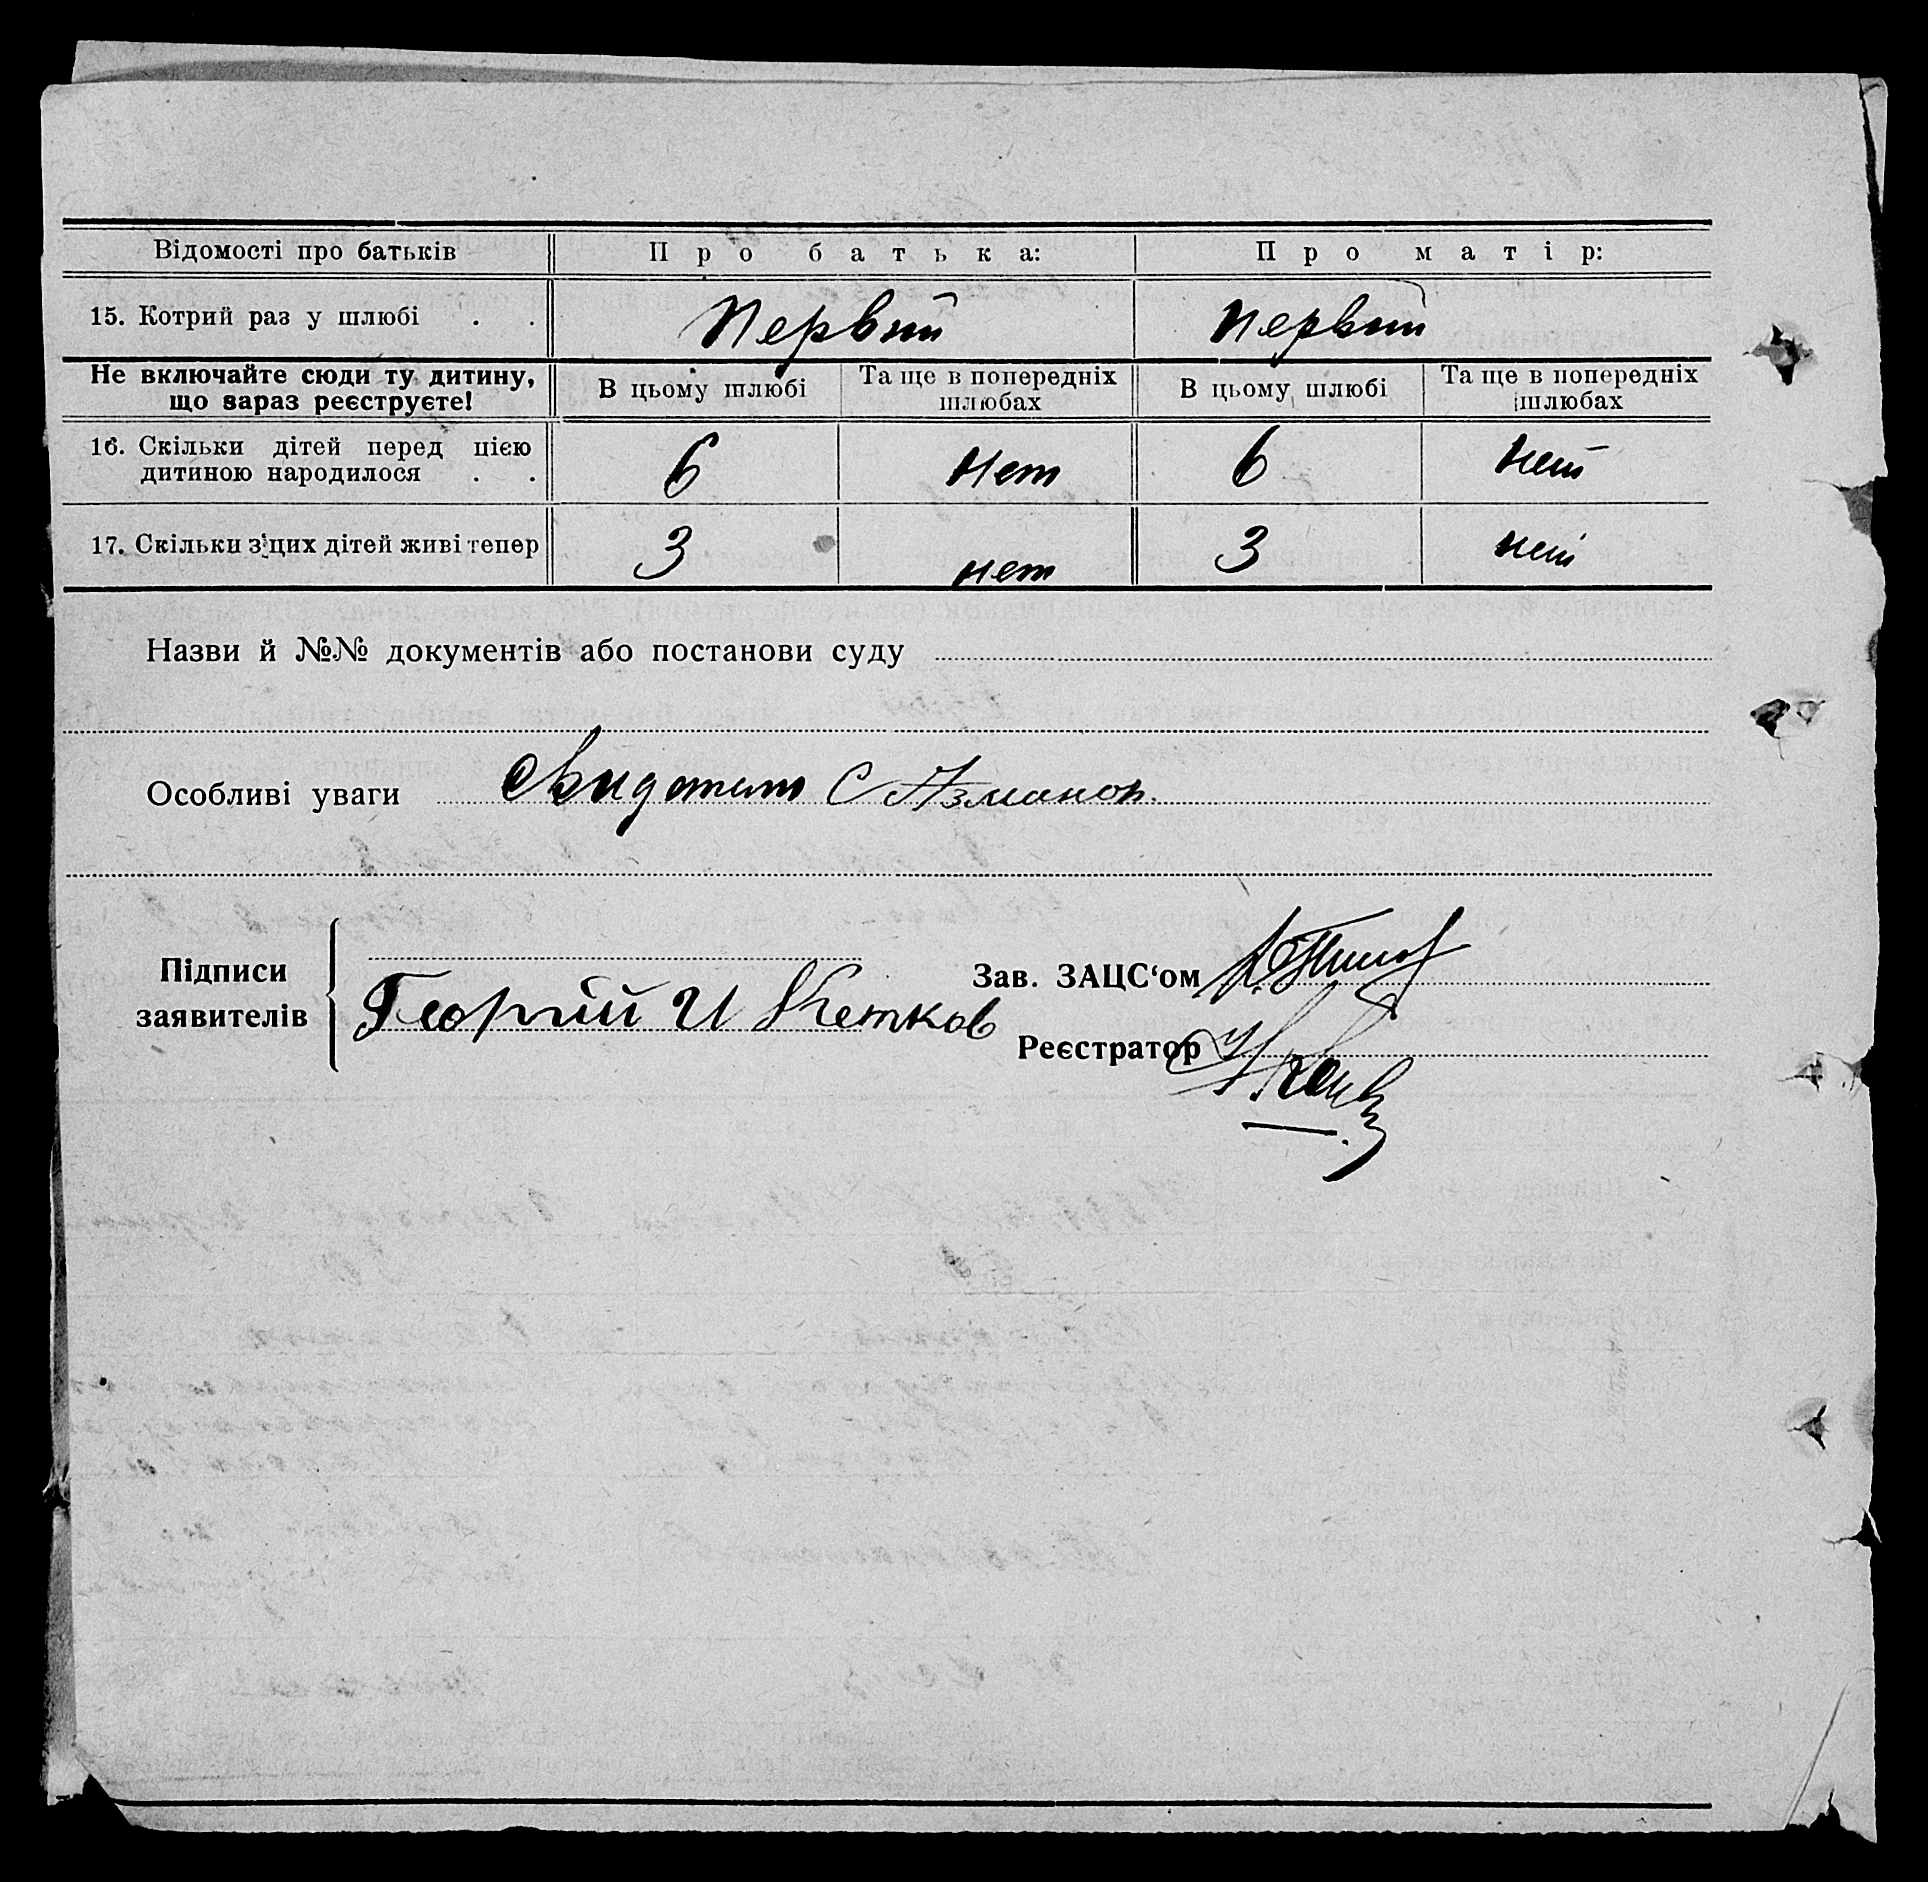 Відомості про батьків Про батька: Про матір:
15. Котрий раз у шлюбі . . Первий Первий
Не включайте сюди ту дитину, що зараз реєструєте! В цьому шлюбі Та ще в попередніх шлюбах В цьому шлюбі Та ще в попередніх шлюбах
16. Скільки дітей перед цією
дитиною народилося . . 6 нет 6 нет
17. Скільки з цих дітей живі тепер 3 нет 3 нет
Назви й №№ документів або постанови суду
Особливі уваги
Підписи
заявителів
Георгий И
Зав. ЗАЦС‘ом
Реєстратор